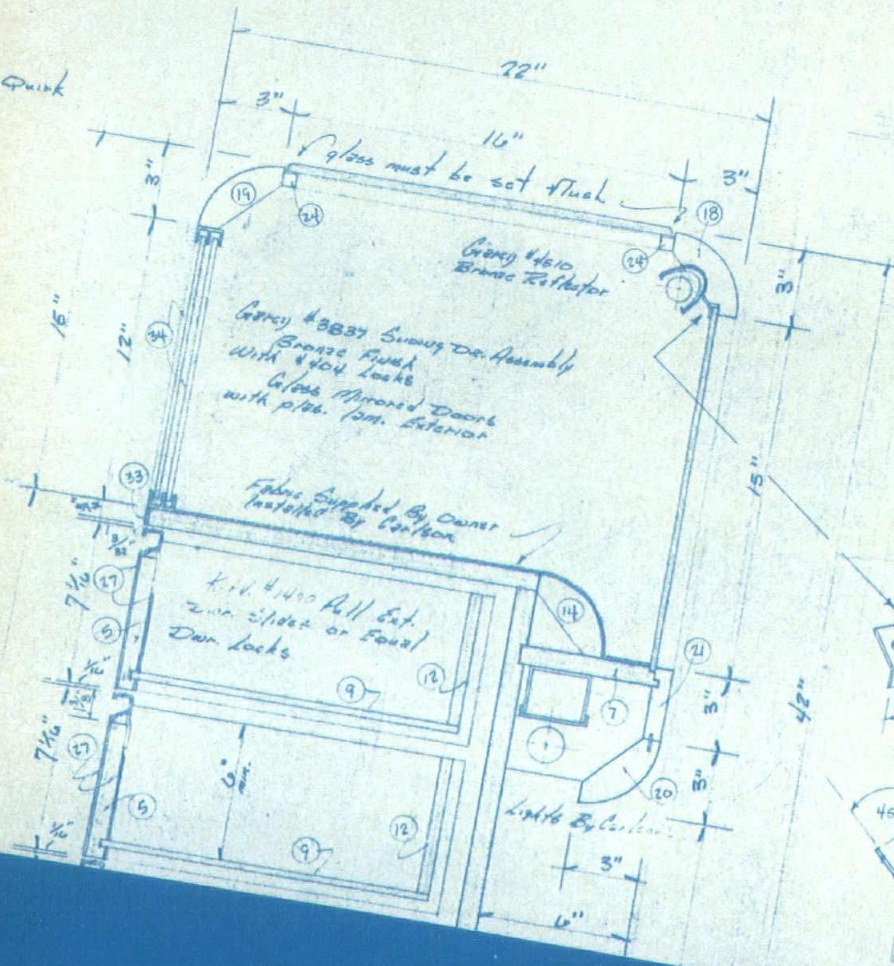 Quirk
22"
3"
16"
3"
glass must be set flush
3"
19
24
18
24
3"
Garcy #4510
Bronze Reflector
15"
12"
34
Garcy #3837 Swing Dr. Assembly
Bronze Finish
With #404 Locks
Glass Mirrored Doors
with plas. lam. Exterior
15"
33
Fabric Supplied By Owner
Installed By Carlson
3/32"
7 1/16"
27
5
K.V. #1400 Full Ext.
Dwr. Slides or Equal
Dwr. Locks
14
21
12
9
7
3"
42"
1/16"
7 1/16"
27
5
6"
min.
20
3"
12
9
Lights By Carlson
1/16"
3"
6"
45